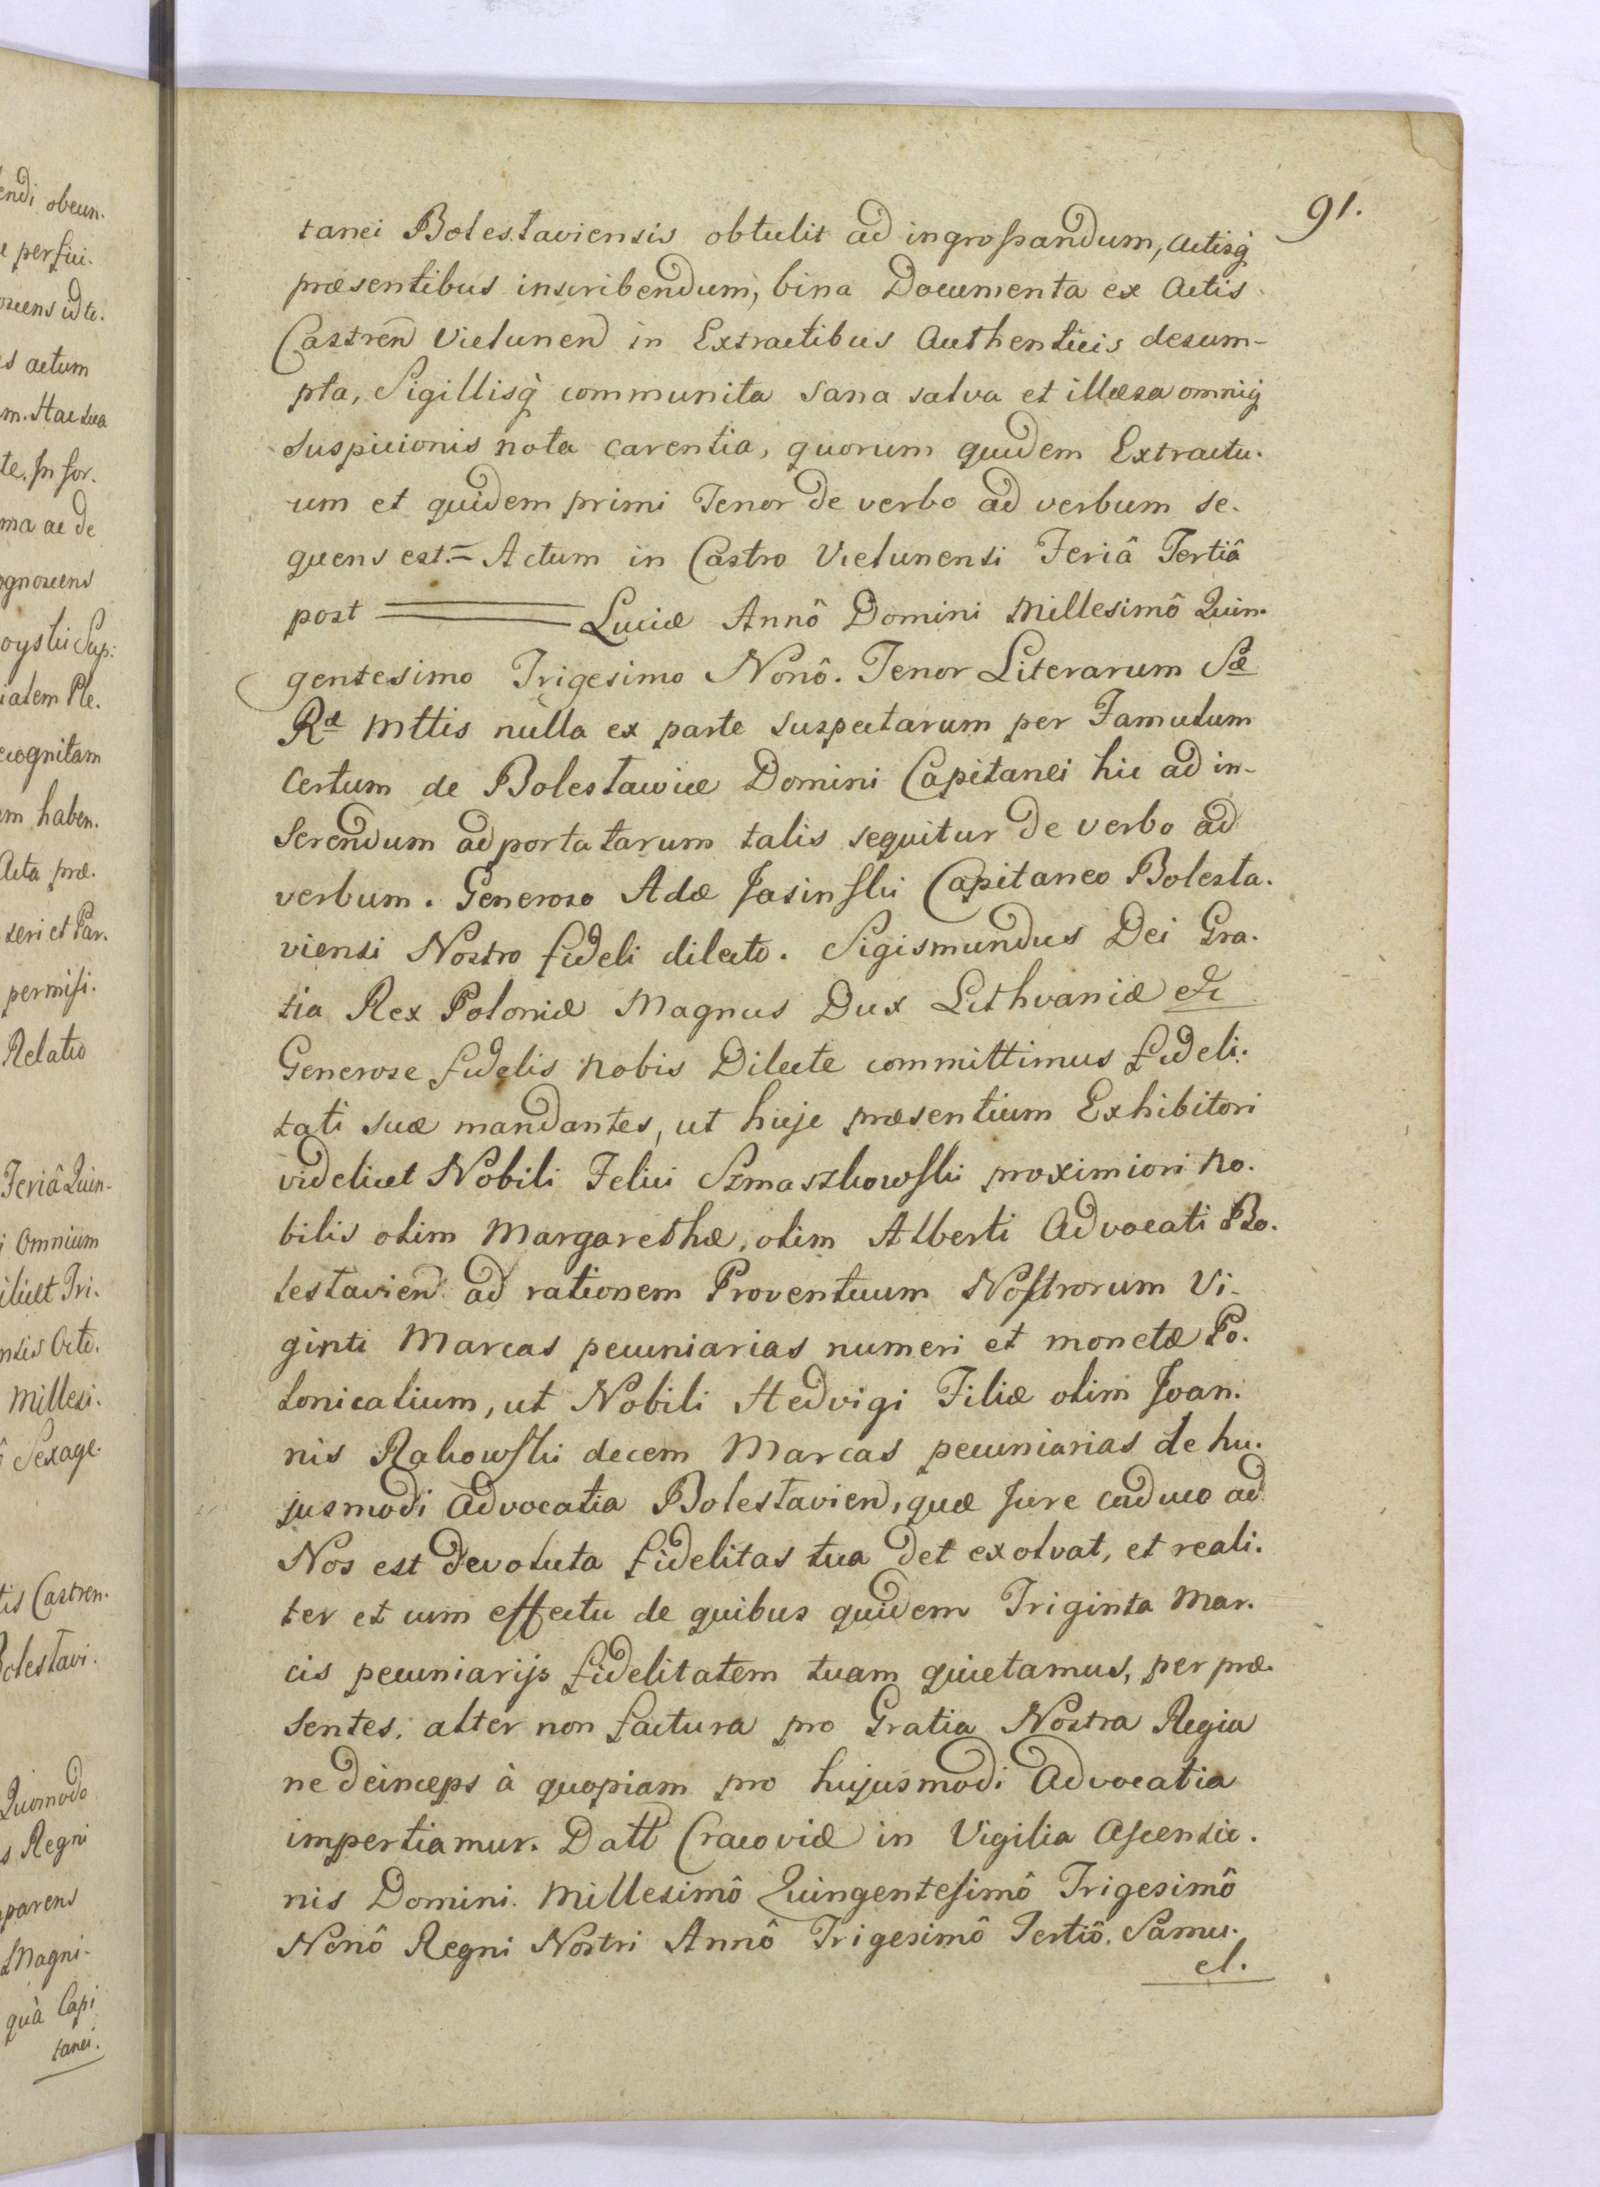 91.
tanei Bolestaviensis obtulit ad ingrossandum, Actisq̀
præsentibus inscribendum, bina Documenta ex Actis
Castren Vielunen in Extractibus Authenticis desum-
pta, Sigillisq̀ communita sana salva et illæsa omniq̀
suspicionis nota carentia, quorum quidem Extractu.
um et quidem primi Tenor de verbo ad verbum se.
quens est.= Actum in Castro Vielunensi Feriâ Tertiâ
post ═══ Luciæ Annô Domini Millesimô Quin.
gentesimo Trigesimo Nonô. Tenor Literarum Sæ
Ræ Mttis nulla ex parte suspectarum per Famulum
Certum de Bolestawice Domini Capitanei hic ad in-
serendum adportatarum talis sequitur de verbo ad
verbum. Generoso Adæ Jasinski Capitaneo Bolesta.
viensi Nostro fideli dilecto. Sigismundus Dei Gra.
tia Rex Poloniæ Magnus Dux Lithvaniæ etc
Generose fidelis nobis Dilecte committimus fideli.
tati suæ mandantes, ut huje præsentium Exhibitori
videlicet Nobili Felici Szmaszkowski proximiori no.
bilis olim Margarethæ, olim Alberti Advocati Bo.
lestavien ad rationem Proventuum Nostrorum Vi-
ginti Marcas pecuniarias numeri et monetæ Po.
lonicalium, ut Nobili Hedvigi Filiæ olim Joan.
nis Rakowski decem Marcas pecuniarias de hu.
jusmodi Advocatia Bolestavien, quæ Jure caduco ad
Nos est devoluta fidelitas tua det exolvat, et reali.
ter et cum effectu de quibus quidem Triginta Mar.
cis pecuniarijs fidelitatem tuam quietamus, per præ.
sentes. alter non factura pro Gratia Nostra Regia
ne deinceps à quopiam pro hujusmodi Advocatia
impertiamur. Datt Cracoviæ in Vigilia Ascensio.
nis Domini. Millesimô Quingentesimô Trigesimô
Nonô Regni Nostri Annô Trigesimô Tertiô. Samu.
el.